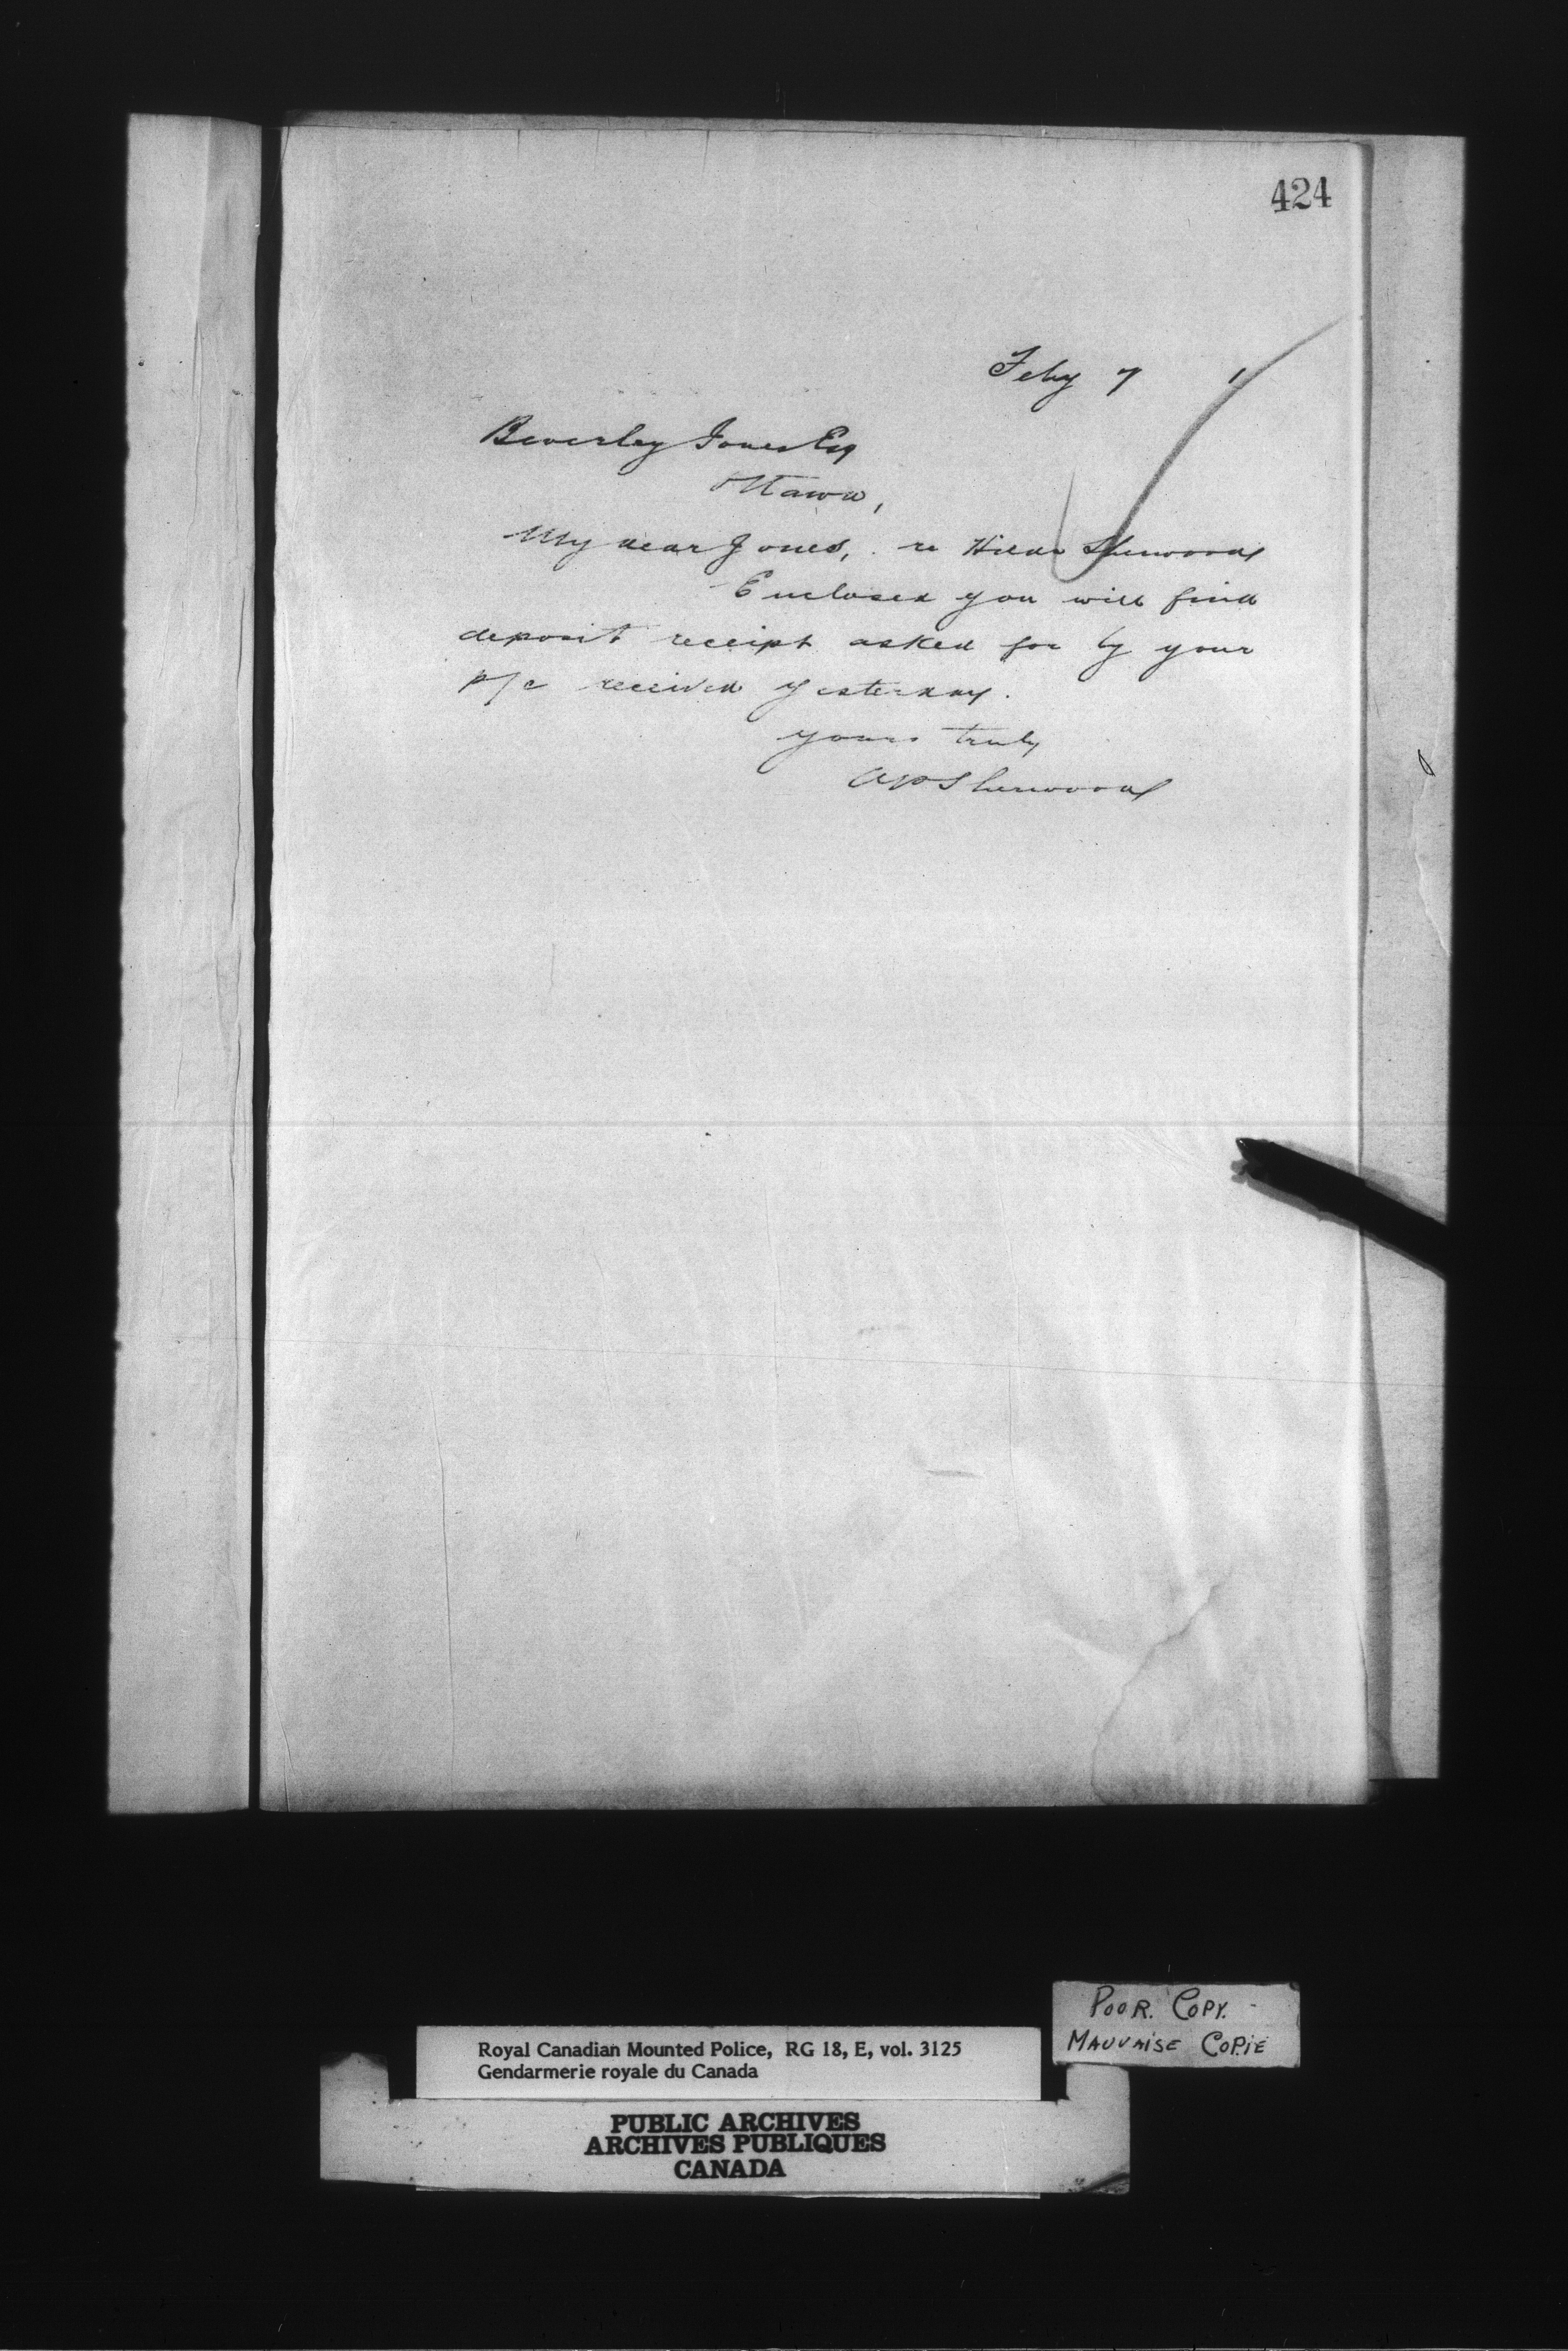 424
Feby 7 1
Beverley Jones Esq
Ottawa,
My dear Jones, re Hilda Sherwood
Enclosed you will find
deposit receipt asked for by your
p/c received yesterday.
yours truly
APSherwood
POOR. COPY.
MAUVAISE COPIE
Royal Canadian Mounted Police, RG 18, E, vol. 3125
Gendarmerie royale du Canada
PUBLIC ARCHIVES
ARCHIVES PUBLIQUES
CANADA